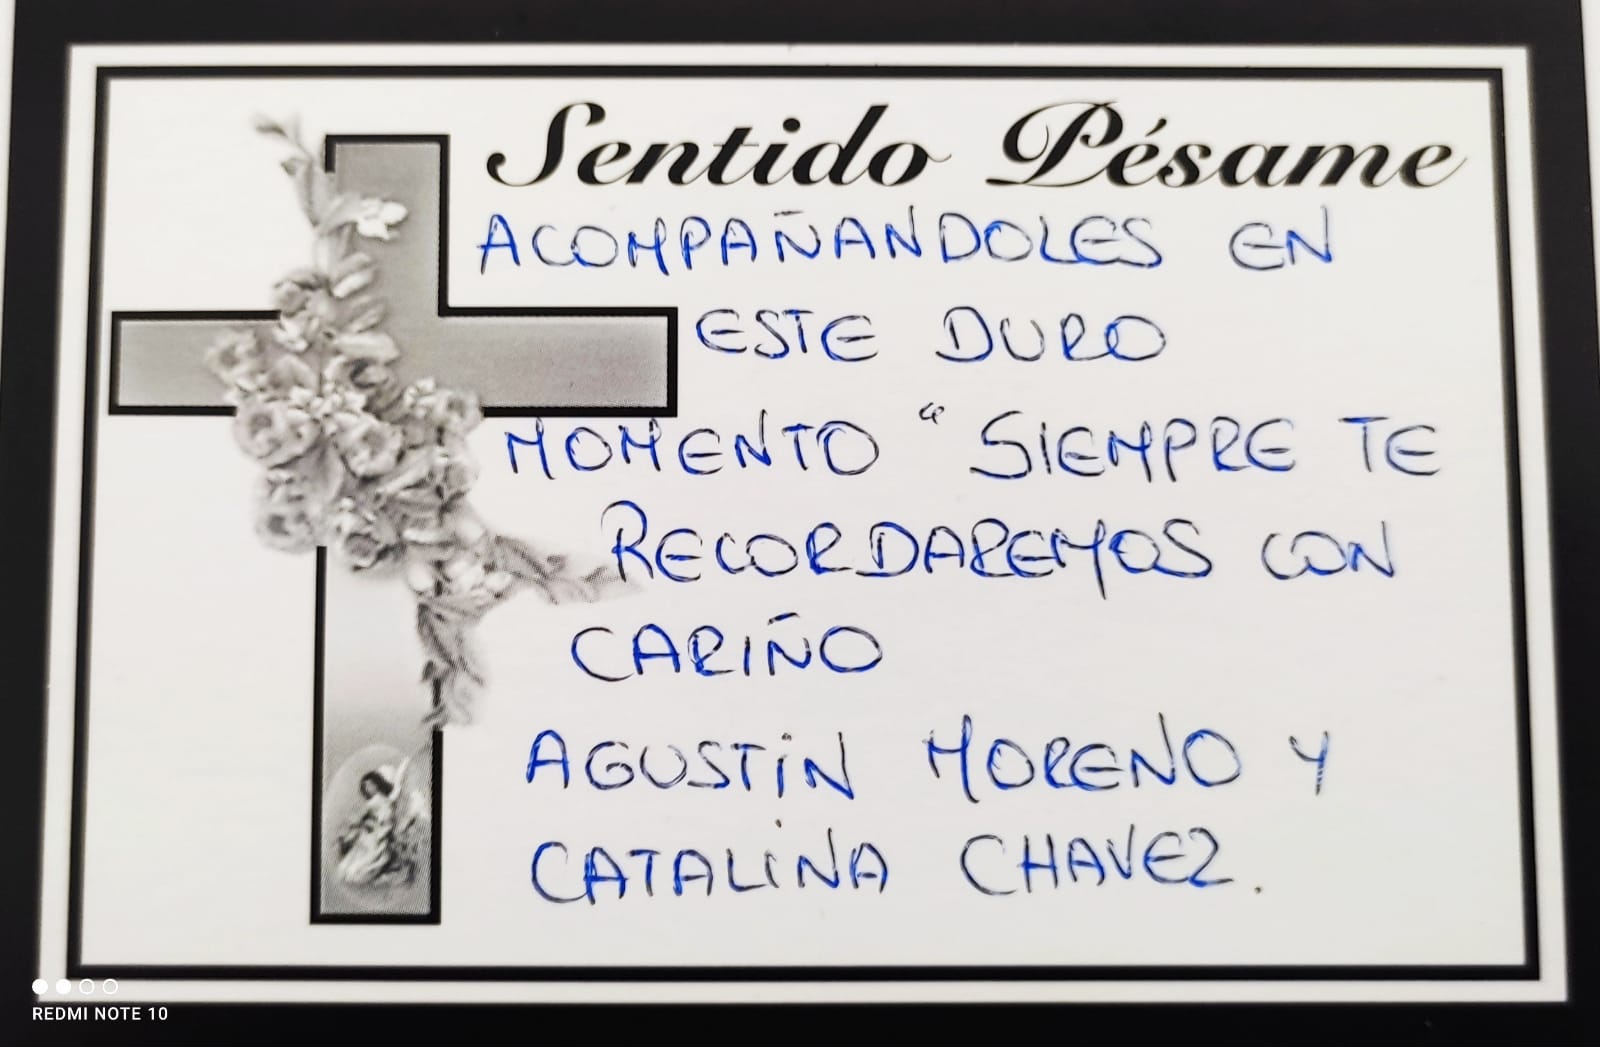 Sentido Pésame
ACOMPAÑANDOLES EN
ESTE DURO
MOMENTO "SIEMPRE TE
RECORDAREMOS CON
CARIÑO
AGUSTíN MORENO Y
CATALiNA CHAVEZ.
REDMI NOTE 10